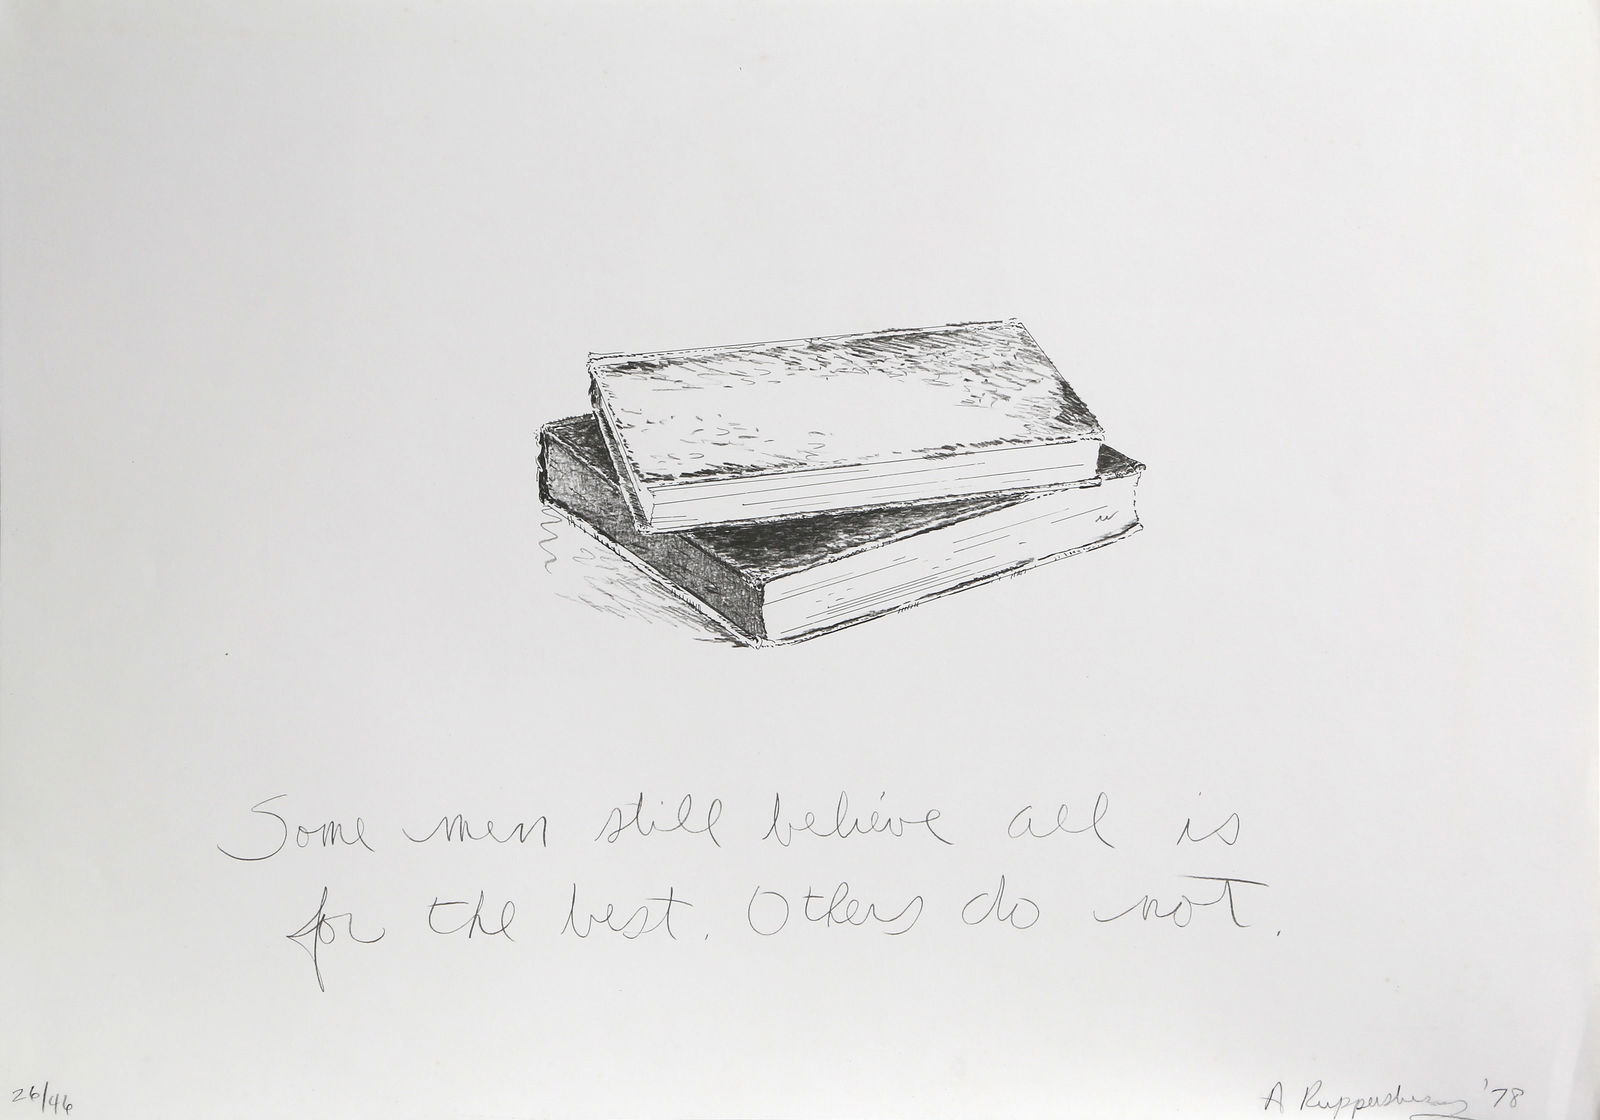 Some men still believe all is
for the best. Others do not.
26/46
A Ruppersberg '78